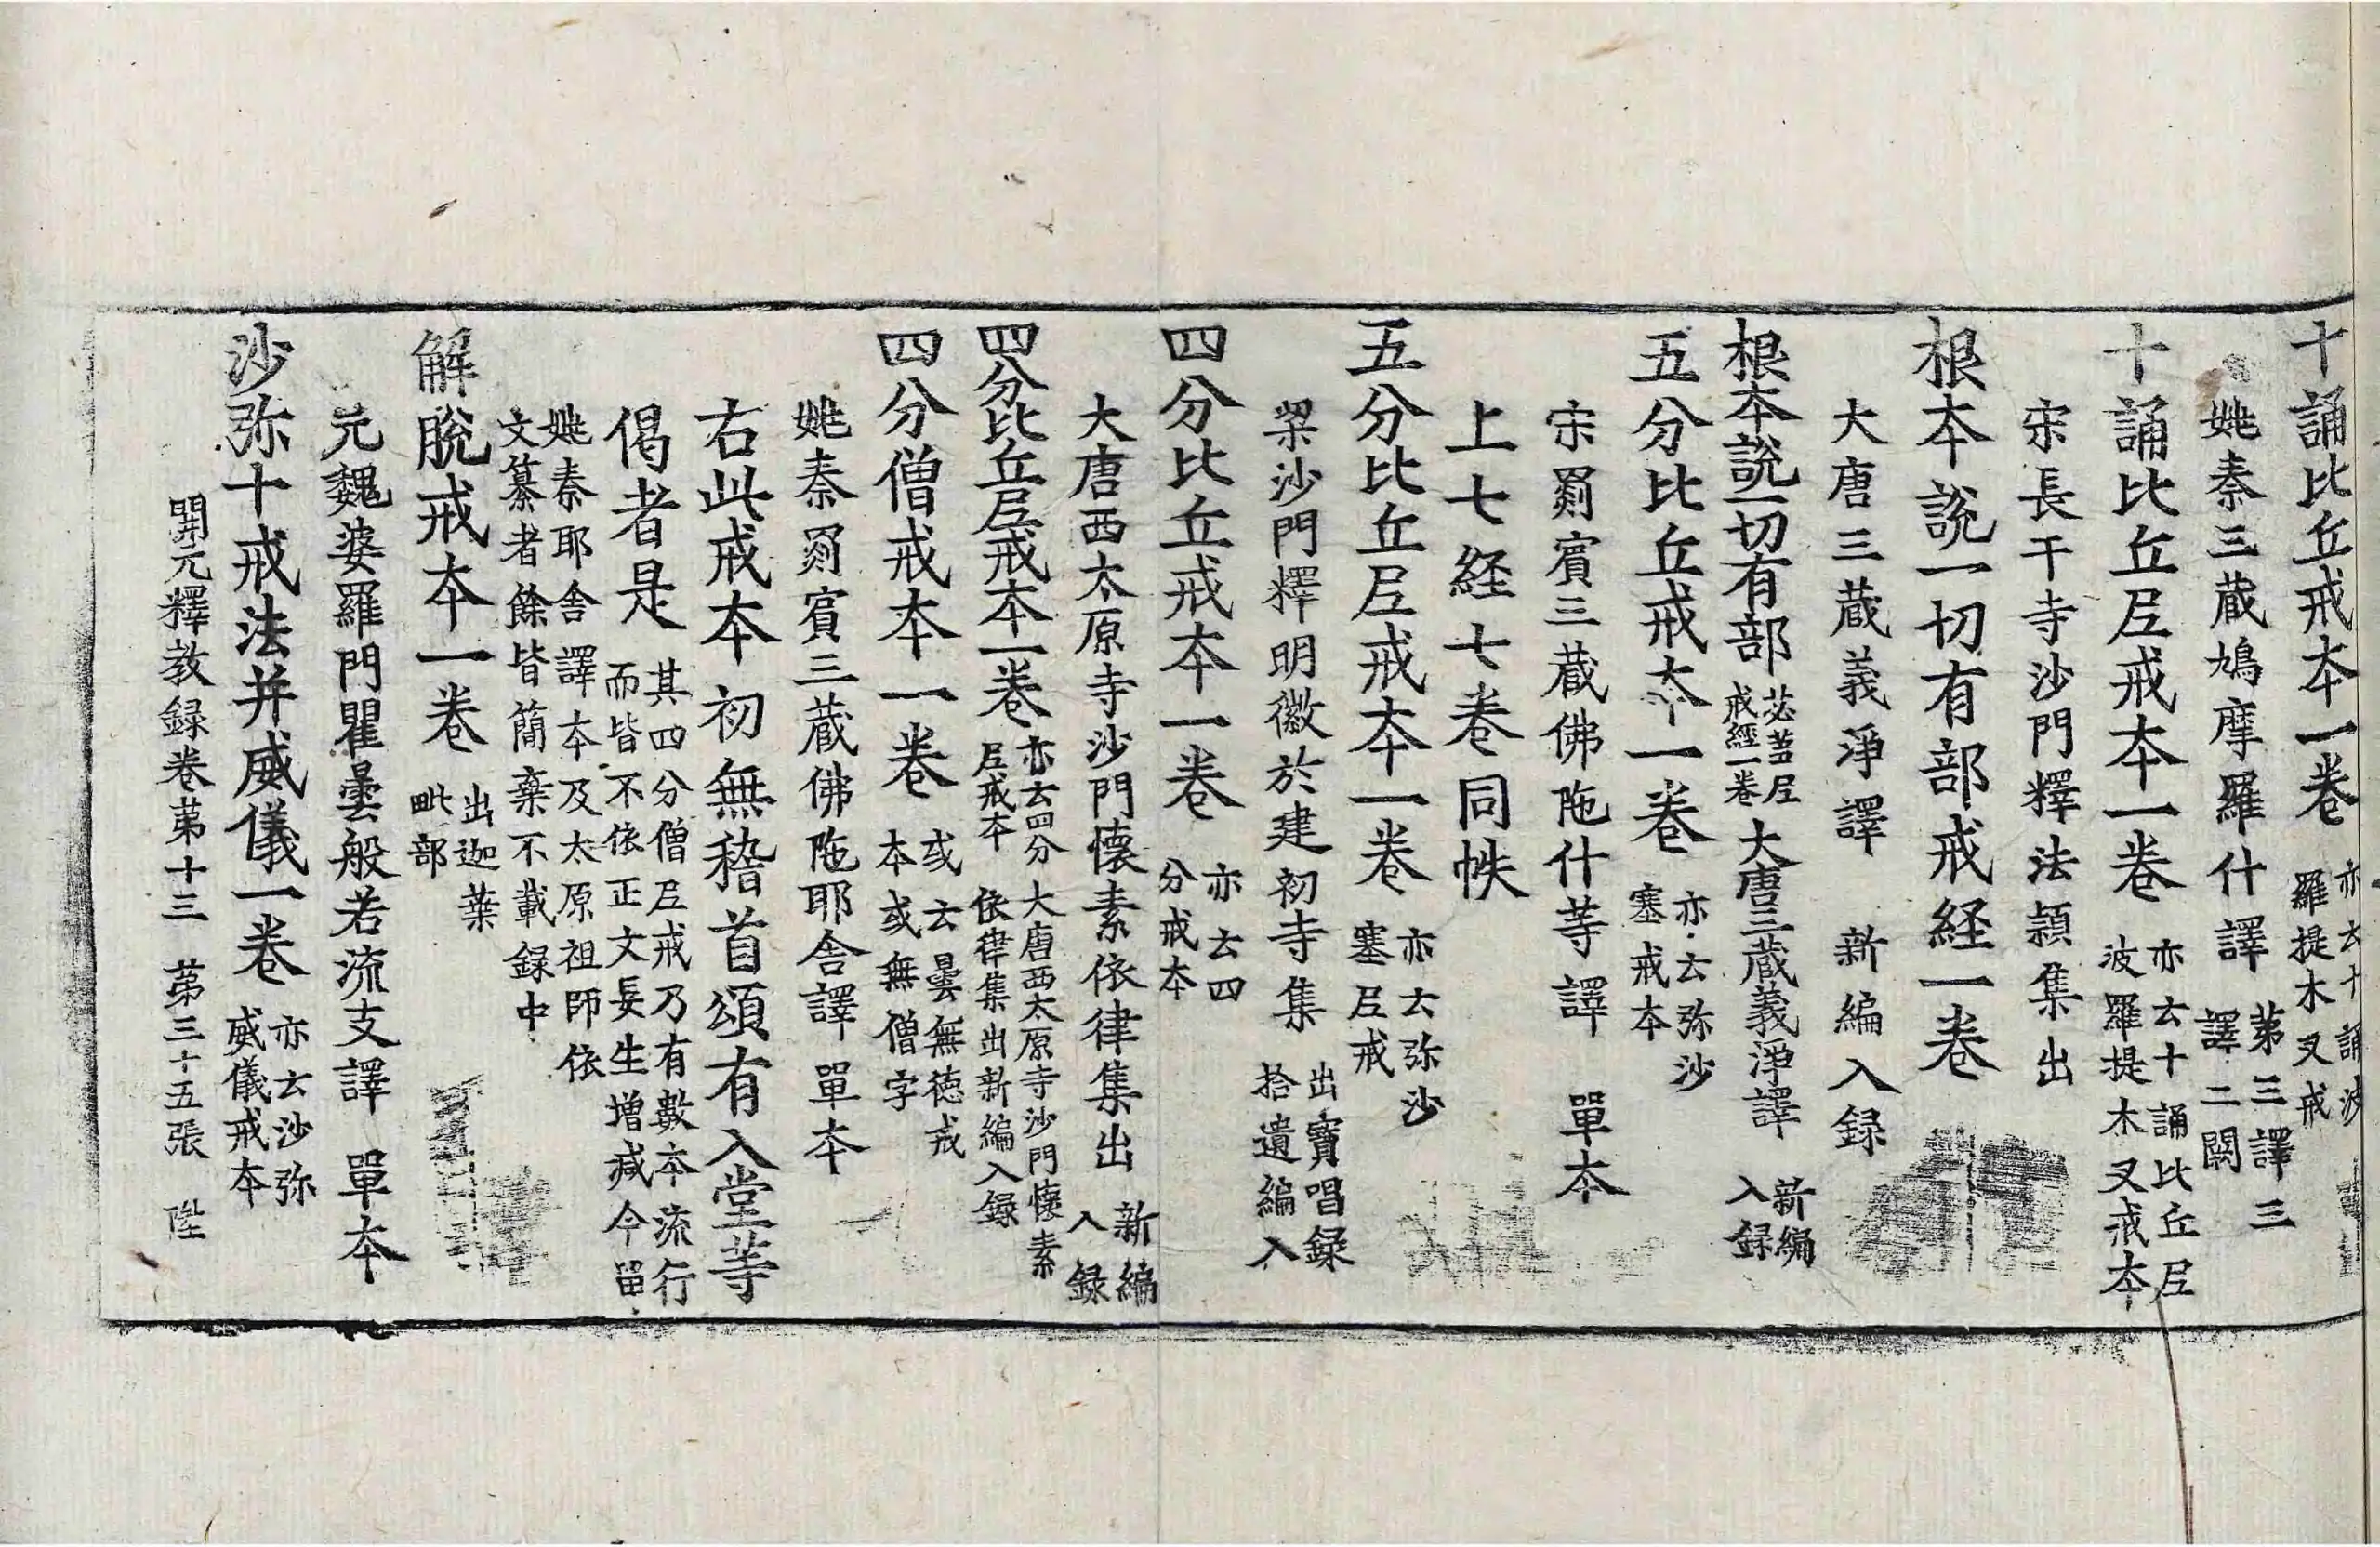 十誦比丘戒本一卷 亦云十誦波羅提木叉戒
姚秦三蔵鳩摩羅什譯 第三譯三譯二闕
十誦比丘尼戒本一卷 亦云十誦比丘尼波羅提木叉戒本
宋長干寺沙門釋法穎集出
根本說一切有部戒経一卷
大唐三蔵義淨譯 新編入録
根本說一切有部苾芻尼戒經一卷 大唐三蔵義淨譯 新編入録
五分比丘戒本一卷 亦云弥沙塞戒本
宋罽賓三蔵佛陁什等譯 單本
上七経七卷同帙
五分比丘尼戒本一卷 亦云弥沙塞尼戒
梁沙門釋明徽於建初寺集 出寶唱録拾遺編入
四分比丘戒本一卷 亦云四分戒本
大唐西太原寺沙門懐素依律集出 新編入録
四分比丘尼戒本一卷 亦云四分尼戒本 大唐西太原寺沙門懐素依律集出新編入録
四分僧戒本一卷 或云曇無徳戒本或無僧字
姚秦罽賓三蔵佛陁耶舎譯 單本
右此戒本初無稽首頌有入堂等
偈者是 其四分僧尼戒乃有數本流行而皆不依正文妄生増减今留
姚秦耶舎譯本及太原祖師依文纂者餘皆簡棄不載録中
解脫戒本一卷 出迦葉毗部
元魏婆羅門瞿曇般若流支譯 單本
沙弥十戒法并威儀一卷 亦云沙弥威儀戒本
開元釋教録卷苐十三 苐三十五張 陞